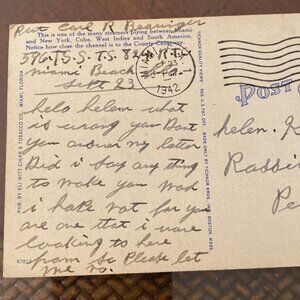 Pvt Earl R Beaniger
This is one of the many steamers plying between Miami
and New York, Cuba, West Indies and South America.
Notice how close the channel is to the County Causeway.
596 T.S.S. T.S. 824 R.T.S.
Miami Beach
Sept 23
helo helen what
is wrong you Dont
you answer my letter
Did i say any thing
to make you mad
i hope not for you
are one that i ware
looking to here
from so Please let
me no.
PUB. BY ELI WITT CIGAR & TOBACCO CO., MIAMI, FLORIDA
"TICHNOR QUALITY VIEWS" REG. U.S. PAT. OFF. MADE ONLY BY TICHNOR BROS., INC., BOSTON, MASS.
SEP 23
1942
POST C
helen. K
Pa